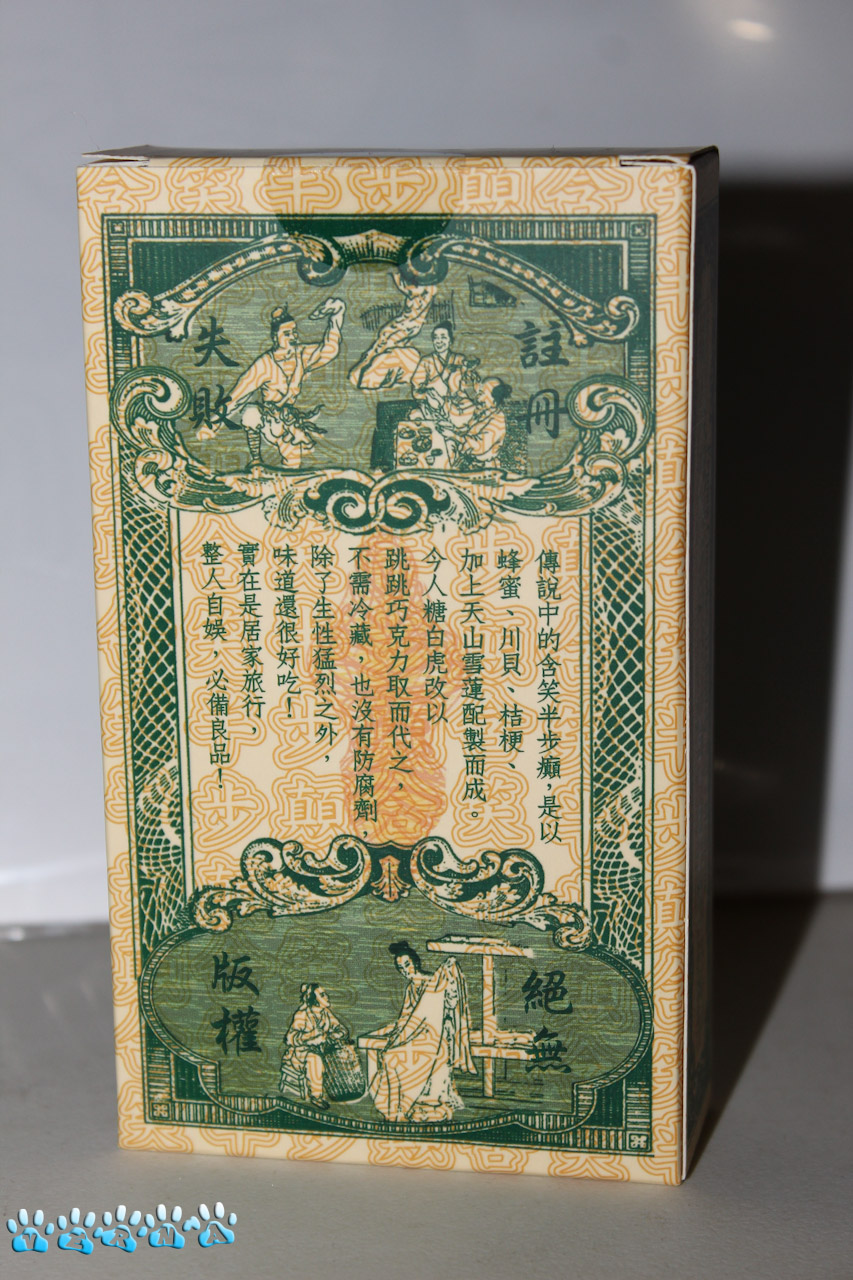 註冊
失敗
傳說中的含笑半步癲，是以
蜂蜜、川貝、桔梗、
加上天山雪蓮配製而成。
今人糖白虎改以
跳跳巧克力取而代之，
不需冷藏，也沒有防腐劑，
除了生性猛烈之外，
味道還很好吃！
實在是居家旅行，
整人自娛，必備良品！
絕無
版權
VERNA